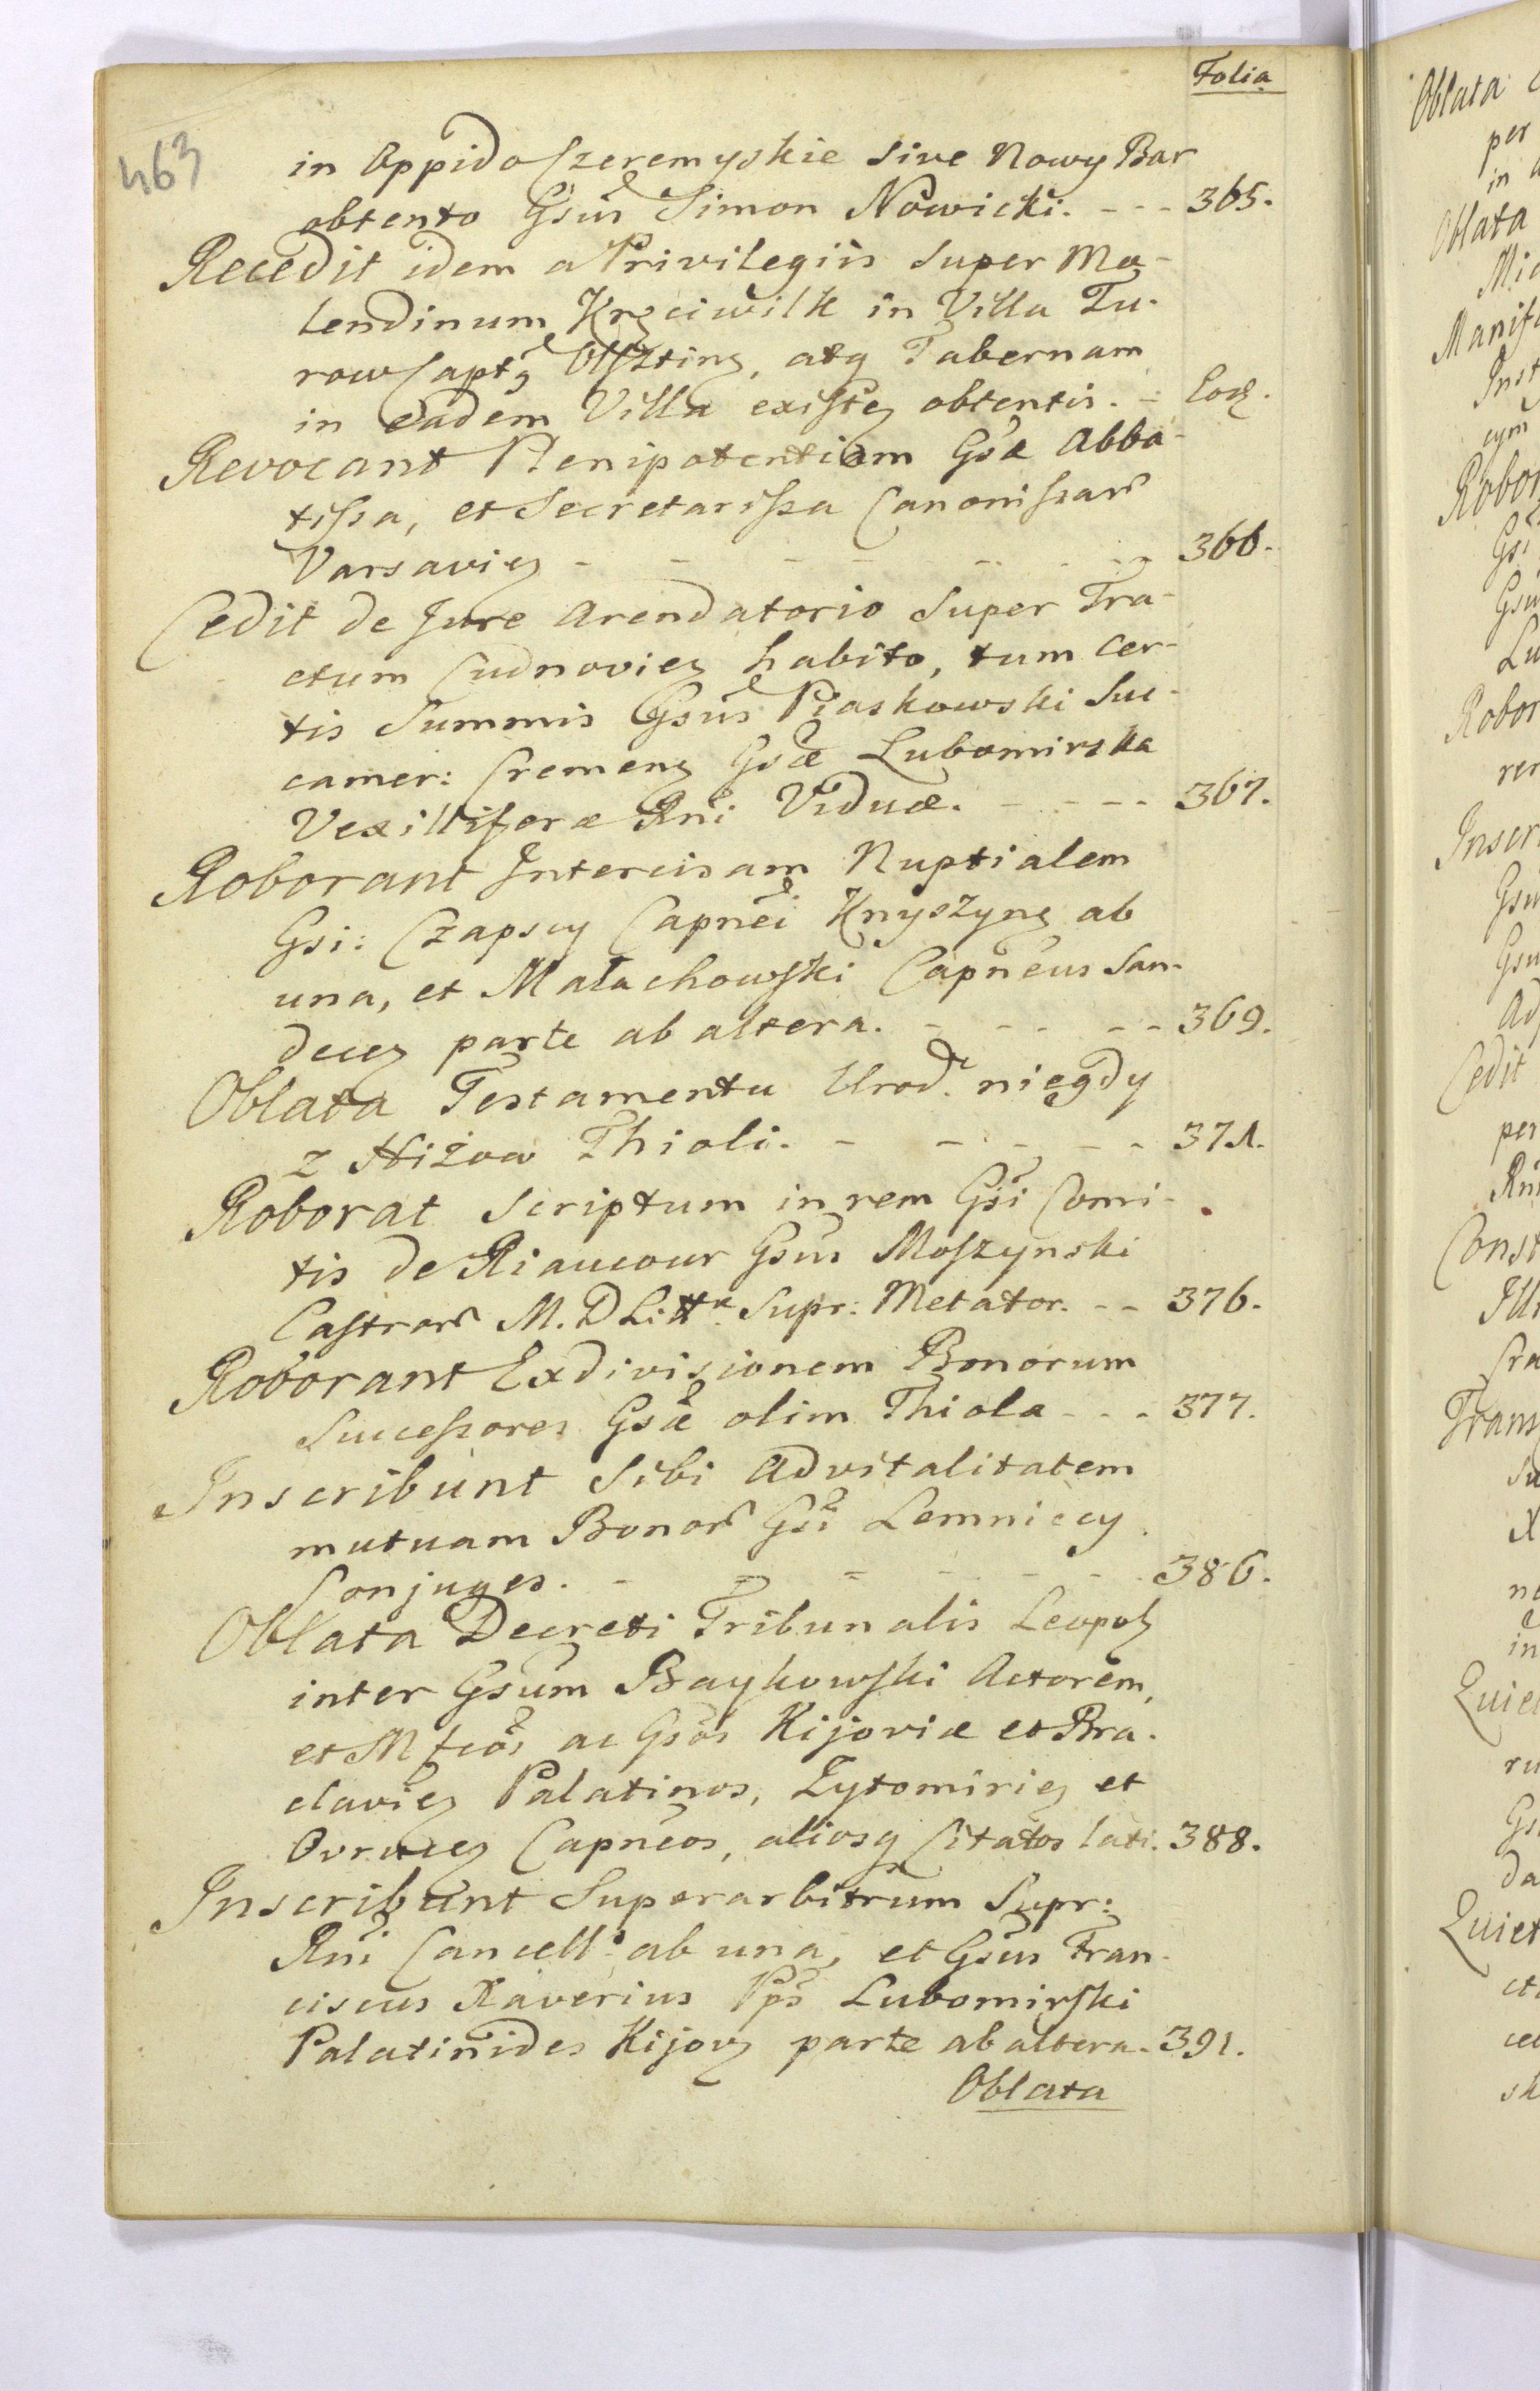 Folia
463
in Oppido Czeremyskie sive Nowy Bar
obtento Gsūs Simon Nowicki. - - - 365.
Recedit idem a Privilegiis super Mo-
lendinum Krzciwilk in Villa Tu-
row Captꝫ Olsztinꝫ, atq Tabernam
in eadem Villa existeꝫ obtentis. - Eodꝫ.
Revocant Plenipotentiam Gsæ Abba-
tissa, et Secretarissa Canonissarũ
Varsavieꝫ - - - - - - - 366.
Cedit de Jure Arendatorio super Tra-
ctum Cudnovieꝫ habito, tum cer-
tis Summis Gsūs Piaskowski Suc-
camer: Cremenꝫ Gsæ Lubomirska
Vexilliferæ Rñi Viduæ. - - - - 367.
Roborant Intercisam Nuptialem
Gsi: Czapscy Capñei Knyszynꝫ ab
una, et Małachowski Capñeus San-
deceꝫ parte ab altera. - - - - - 369.
Oblata Testamentu Urod. niegdy
z Hiżow Thioli. - - - - - 371.
Roborat Scriptum in rem Gsi Comi-
tis de Riaucour Gsūs Moszynski
Castrorũ M. D Litt. Supr: Metator. - - 376.
Roborant Exdivisionem Bonorum
Successores Gsæ olim Thiola - - - 377.
Inscribunt sibi Advitalitatem
mutuam Bonorũ Gsi Lemniccy
Conjuges. - - - - - - - 386.
Oblata Decreti Tribunalis Leopolꝫ
inter Gsūm Baykowski Actorem,
et Mfcos ac Gsos Kijoviæ et Bra-
claviеꝫ Palatinos, Zytomirieꝫ et
Ovruceꝫ Capñeos, aliosq Citatos lati. 388.
Inscribunt Superarbitrum Supr:
Rñi Cancell: ab una, et Gsūs Fran-
ciscus Xaverius Pps Lubomirski
Palatinides Kijovꝫ parte ab altera. 391.
Oblata